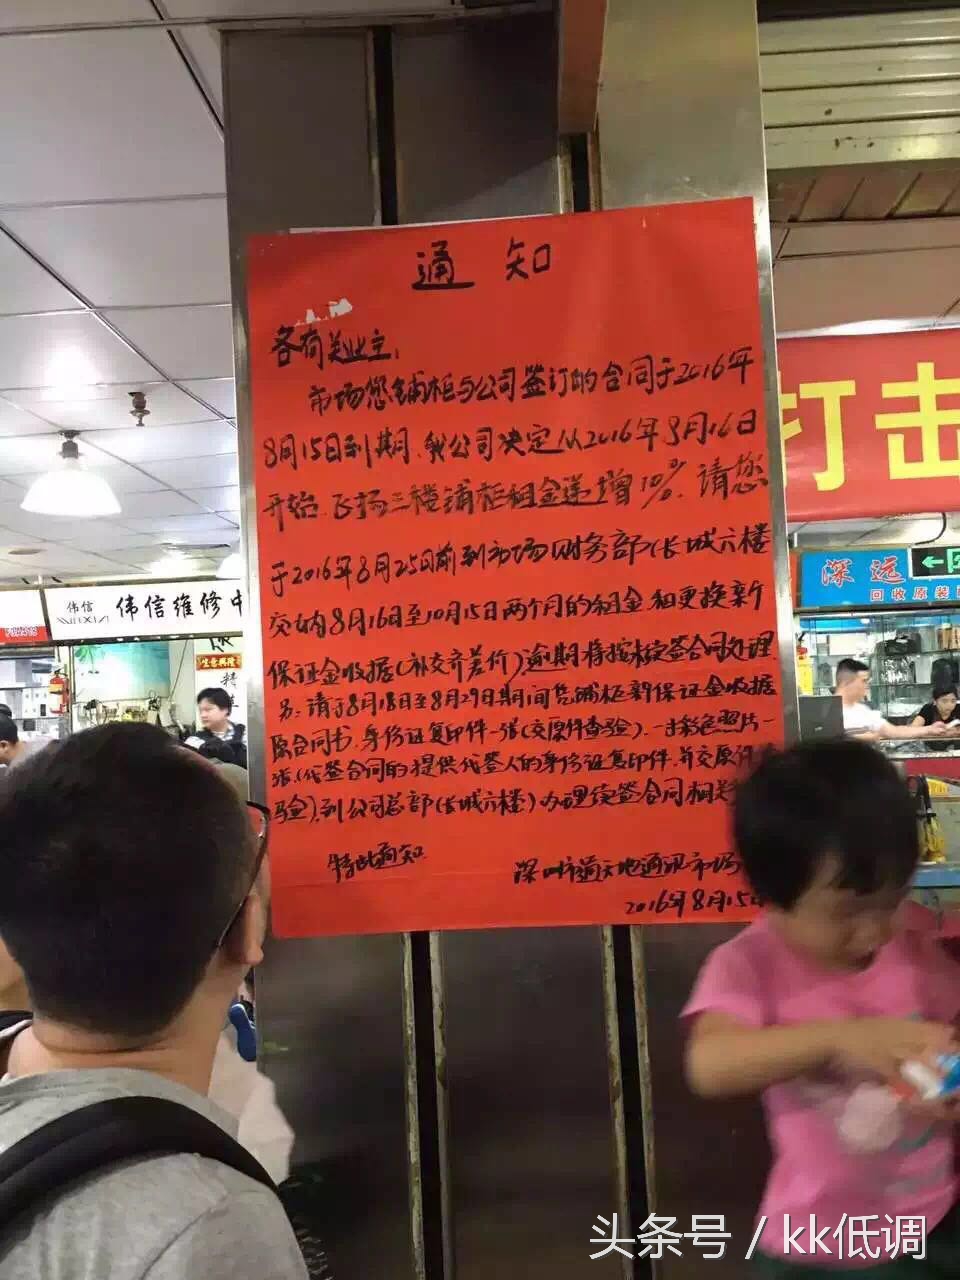 通知
各有关业主:
市场您铺柜与公司签订的合同于2016年
8月15日到期,我公司决定从2016年8月16日
开始,飞扬二楼铺柜租金递增10%,请您
于2016年8月25日前到市场财务部(长城六楼
交纳8月16日至10月15日两个月的租金和更换新
保证金收据(补交齐差价),逾期将按不续签合同处理.
另:请于8月18日至8月29日期间凭铺柜新保证金收据
原合同书、身份证复印件一张(交原件查验)、一寸彩色照片一
张,(代签合同的提供代签人的身份证复印件,并交原件
验),到公司总部(长城六楼)办理续签合同相关
特此通知.
深圳市通天地通讯市场
2016年8月15日
打击
深远
回收原装
伟信
WEIXIN
伟信维修中
生意兴隆
头条号 / kk低调